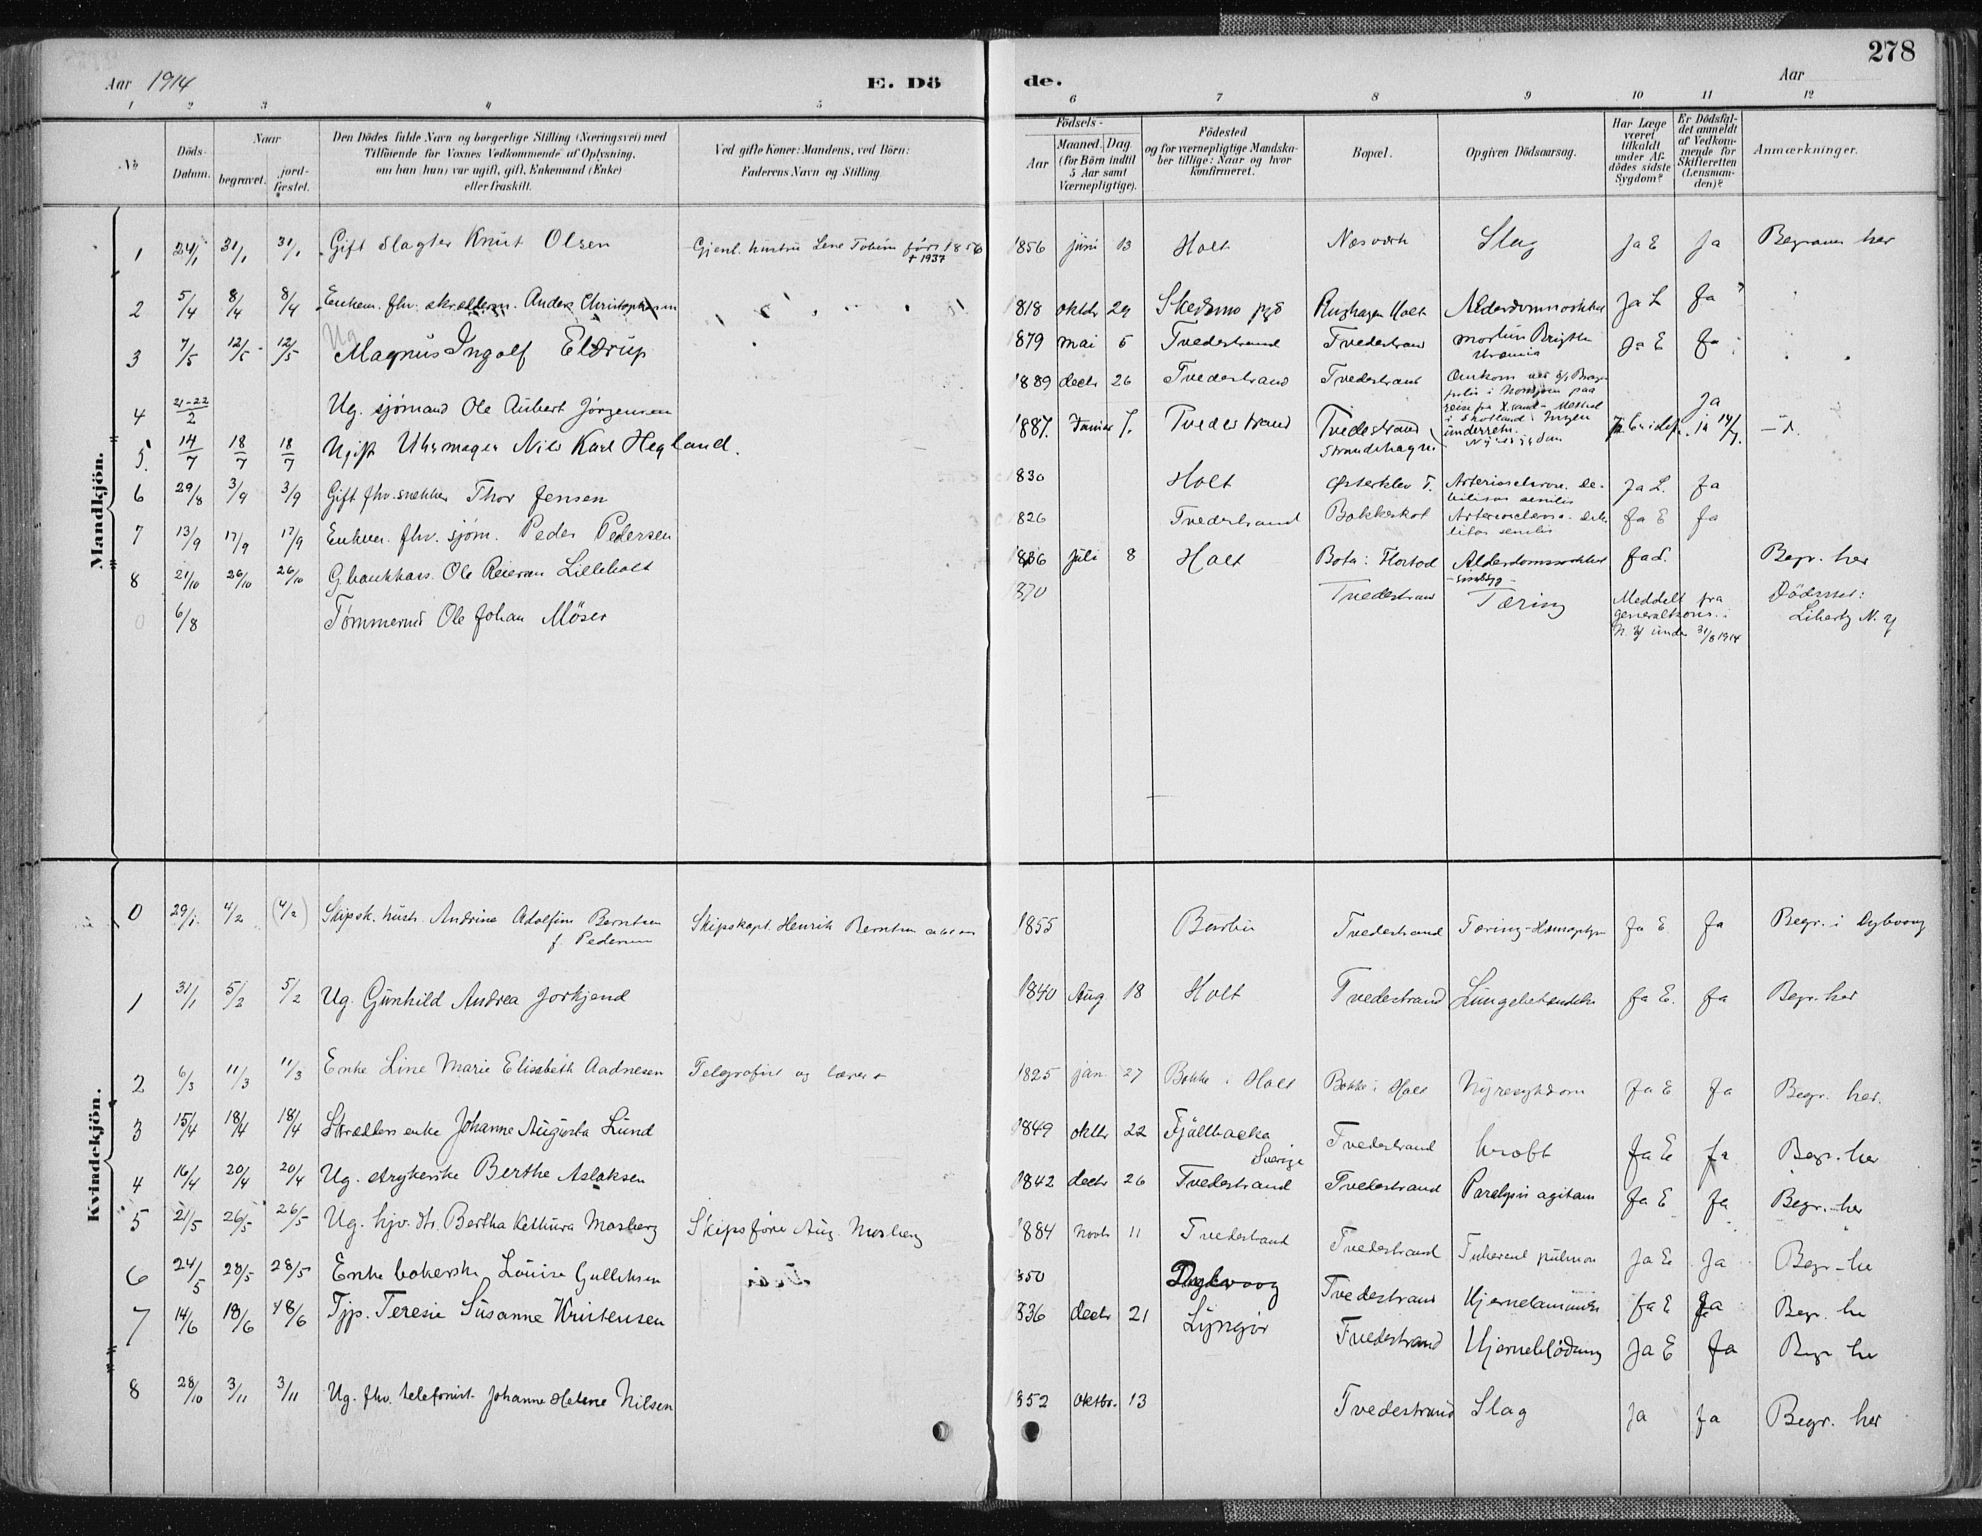 278
Aar 1914 E. Dö de. Aar
1 2 3 4 5 6 7 8 9 10 11 12
No
Döds-Datum.
Naar
begravet.
jord-fæstet.
Den Dödes fulde Navn og borgerlige Stilling (Næringsvei) med
Tilföiende for Voxnes Vedkommende af Oplysning,
om han (hun) var ugift, gift, Enkemand (Enke)
eller fraskilt.
Ved gifte Koner: Mandens, ved Börn:
Faderens Navn og Stilling.
Födsels-
Aar
Maaned. Dag.
(for Börn indtil
5 Aar samt
Værnepligtige).
Födested
og for værnepligtige Mandska-
ber tillige: Naar og hvor
konfirmeret.
Bopæl.
Opgiven Dödsaarsag.
Har Læge
været
tilkaldt
under Af-
dödes sidste
Sygdom?
Er Dödsfal-
det anmeldt
af Vedkom-
mende for
Skifteretten
(Lensman-
den)?
Anmærkninger.
Mandkjön.
1 24/1 31/1 31/1 Gift slagter Knut Olsen Gjenl. hustru Lene født 1856 + 1937 1856 juni 13 Holt Næsverk Slag Ja E Ja Begraven her
2 5/4 8/4 8/4 Enkem. fhv. skrædderm. Anders Christophersen 1818 oktbr 29 Skedsmo pgd Holt Ja L Ja
3 7/5 12/5 12/5 Ug Magnus Ingolf Eldrup 1879 mai 5 Tvedestrand Tvedestrand morbus Brigthi Uræmia Ja E Ja
4 21-22/2 Ug. sjömand Ole Aubert Jørgensen 1889 decbr 26 Tvedestrand Tvedestrand Omkom i Nordsjøen paa reise fra X.sand - i Skotland. Ingen underretn. Ja
5. 14/7 18/7 18/7 Ugift Uhrmager Nils Karl Hegland. 1887. 7. Tvedestrand Tvedestrand Nyresygdom
6 29/8 3/9 3/9 Gift fhv. snekker Thor Jensen 830 Holt Østerklev T. Arteriosclerose. debilitas senilis Ja L. Ja
7 13/9 17/9 17/9 Enkem. fhv. sjøm. Peder Pedersen 826 Tvedestrand Bakkeskot Ja E Ja
8 21/10 26/10 26/10 Ole Reiersen Lilleholt 1836 Juli 8 Holt Alderdomssvakhet Begr. her
0 6/8 Tømmermd Ole Johan Möser 870 Tvedestrand Tæring Meddelt fra generalkons. i N.Y under 31/8 1914 Dödssted: Liberty N.Y
Kvindekjön.
0 29/1 4/2 (4/2) Skipsk. hustr. Andrine Adolfine Berntsen
f. Pedersen Skipskapt. Henrik Berntsen 1855 Barbu Tvedestrand Tæring - Ja E. Ja Begr. i Dybvaag
1 31/1 5/2 5/2 Ug. Gunhild Andrea Jorkjend 1840 Aug. 18 Holt Tvedestrand Lungebetændelse Ja E. Ja Begr. her
2 6/3 11/3 11/3 Enke Line Marie Elisabeth Aadnesen Telgrafist og lærer + 1825 jan. 27 Bakke i Holt Bakke i Holt Nyresykdom Ja E Ja Begr. her.
3 15/4 18/4 18/4 Skrædders enke Johanne Augusta Lund 1849 oktbr 22 Fjällbacka Sverige Tvedestrand Kræft Ja E Ja Begr. her
4 16/4 20/4 20/4 Ug. strykerske Berthe Aslaksen 1842 decbr 26 Tvedestrand Tvedestrand Paralysis agitans Ja E Ja Begr. her
5 21/5 26/5 26/5 Ug. hjv. dtr. Bertha Kethura Mosberg Skipsfører Aug. Mosberg 1884 novbr 11 Tvedestrand Tvedestrand Tuberkul pulmon Ja E Ja Begr. he
6 24/5 28/5 28/5 Enke bakerske Louise Gulliksen 850 Dybvaag Tvedestrand Ja E Ja Begr. he
7 14/6 18/6 18/6 Tjp. Teresie Susanne Kristensen 836 decbr 21 Lyngør Tvedestrand Hjerneblødning Ja E Ja Begr he
8 28/10 3/11 3/11 Ug. fhv. telefonist. Johanne Helene Nilsen 852 oktbr. 13 Tvedestrand Slag Ja Ja Begr. her